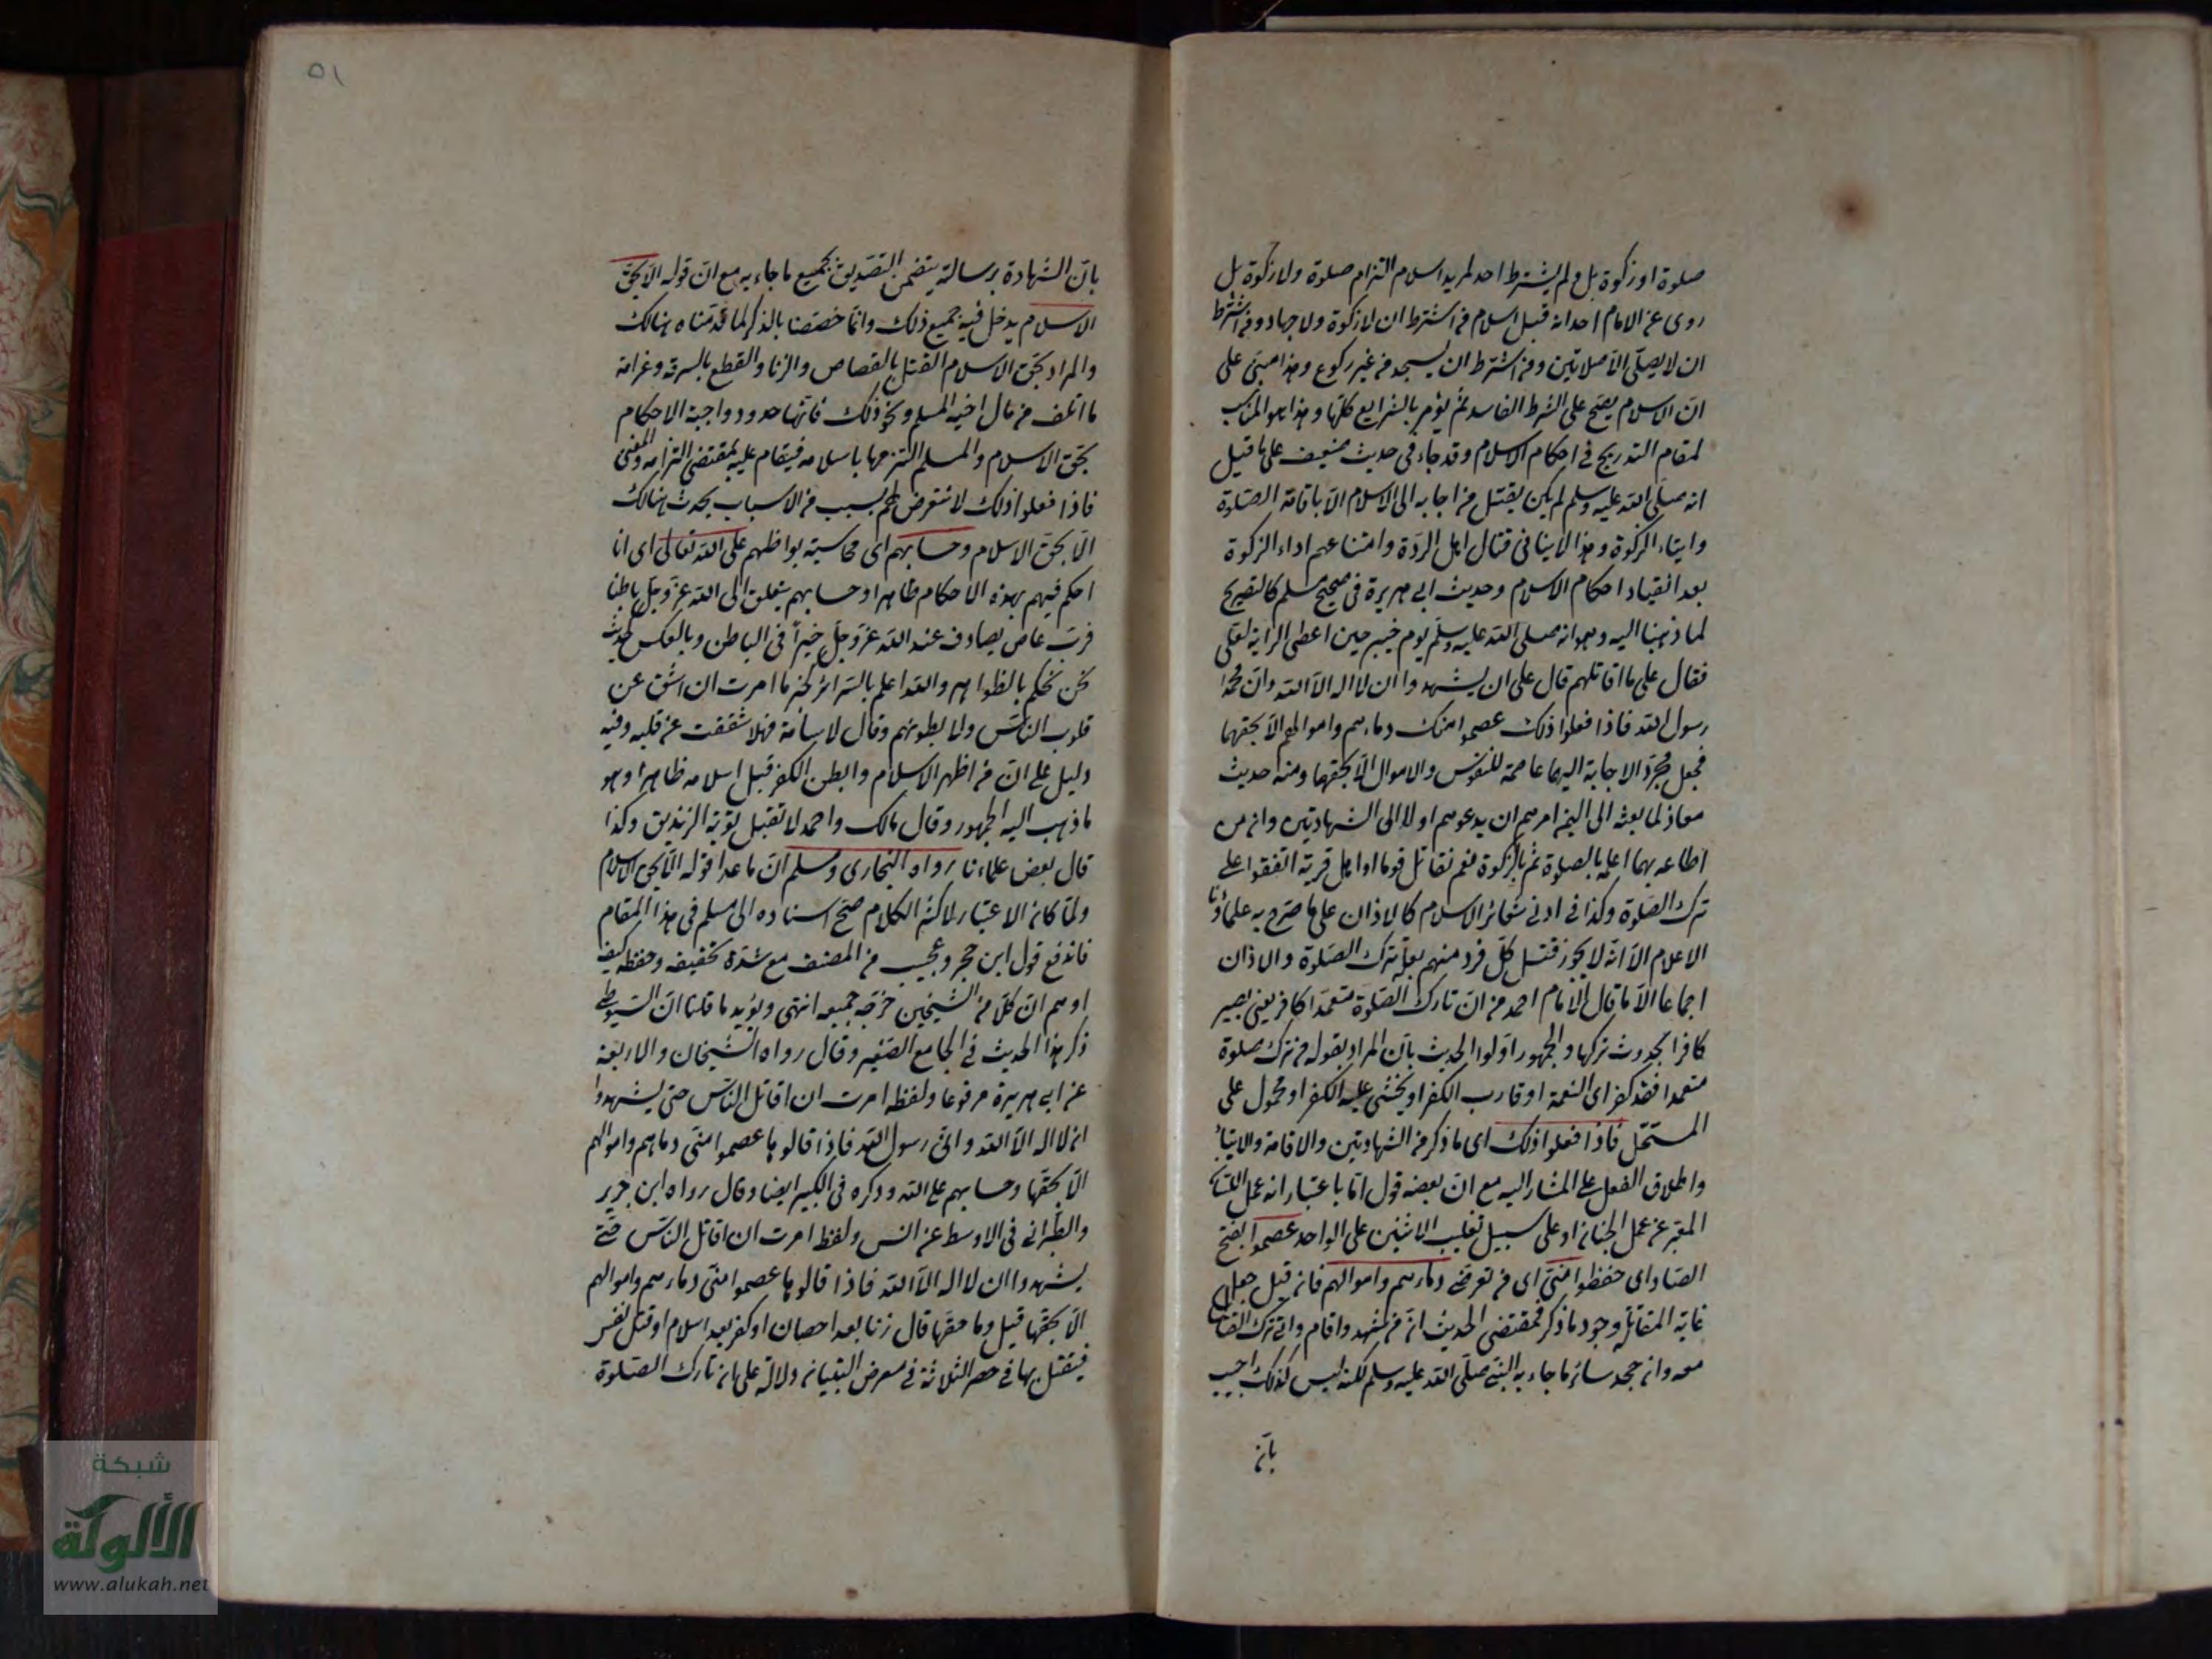 صلوة او زكوة بل ولم يشترط احد لمريد اسلام التزام صلوة ولا زكوة بل
روى عن الامام احمد انه قبل اسلام من اشترط ان لا زكوة ولا جهاد ومن اشترط
ان لا يصلّى الّا صلاتين ومن اشترط ان يسجد من غير ركوع وهذا مبنىّ على
انّ الاسلام يصحّ على الشرط الفاسد ثمّ يؤمر بالشرايع كلّها وهذا هو المناسب
لمقام التدريج في احكام الاسلام وقد جاء فى حديث ضعيف على ما قيل
انه صلّى الله عليه وسلم لم يكن يقبل من اجابه الى الاسلام الّا باقامة الصّلوة
وايتاء الزكوة وهذا لا ينافى قتال اهل الردّة وامتناعهم اداء الزكوة
بعد انقياد احكام الاسلام وحديث ابى هريرة فى صحيح مسلم كالتصريح
لما ذهبنا اليه وهو انه صلى الله عليه وسلّم يوم خيبر حين اعطى الراية لعلى
فقال على ما اقاتلهم قال على ان يشهدوا ان لا اله الّا الله وانّ محمّدا
رسول الله فاذا فعلوا ذلك عصموا منك دماءهم واموالهم الّا بحقهما
فجعل مجرّد الاجابة اليهما عاصمة للنفوس والاموال الّا بحقهما ومنه حديث
معاذ لما بعثه الى اليمن امرهم ان يدعوهم اولا الى الشهادتين وان من
اطاعه بهما اعلمه بالصلوة ثمّ بالزكوة نعم نقاتل قوما او اهل قرية اتفقوا على
ترك الصّلوة وكذا فى ادنى شعائر الاسلام كالاذان على ما صرّح به علماؤنا
الاعلام الّا انّه لا يجوز قتل كلّ فرد منهم بعلّة ترك الصّلوة والاذان
اجماعا الّا ما قال الامام احمد من انّ تارك الصّلوة متعمّدا كافر يعنى يصير
كافرا بحدوث تركها والجمهور اوّلوا الحديث بانّ المراد بقوله من ترك صلوة
متعمدا فقد كفر اى النعمة او قارب الكفر او يخشى عليه الكفر او محمول على
المستحلّ فاذا فعلوا ذلك اى ما ذكر من الشهادتين والاقامة والايتاء
واطلاق الفعل على المشار اليه مع انّ بعضه قول امّا باعتبار انه عمل اللسان
المعبّر عن عمل الجنان او على سبيل تغليب الاثنين على الواحد عصموا بفتح
الصّاد اى حفظوا منّى اى من تعرضى دماءهم واموالهم فان قيل جعل
غاية المقاتلة وجود ما ذكر فمقتضى الحديث انّ من شهد واقام واتى ترك القتال
معه وان جحد سائر ما جاء به النّبىّ صلّى الله عليه وسلم لكنه ليس كذلك اجيب
بانّ
٥١
بانّ الشهادة برسالته يتضمن التصديق بجميع ما جاء به مع انّ قوله الّا بحقّ
الاسلام يدخل فيه جميع ذلك وانّما خصّصنا بالذكر لما قدّمناه هنالك
والمراد بحقّ الاسلام القتل بالقصاص والزنا والقطع بالسرقة وغرامة
ما اتلف من مال اخيه المسلم ونحو ذلك فانّها حدود واجبة الاحكام
بحقّ الاسلام والمسلم التزمها باسلامه فيقام عليه بمقتضى التزامه والمعنى
فاذا فعلوا ذلك لا نتعرض لهم بسبب من الاسباب يحدث هنالك
الّا بحقّ الاسلام وحسابهم اى محاسبة بواطنهم على الله تعالى اى انا
احكم فيهم بهذه الاحكام ظاهرا وحسابهم يتعلق الى الله عزّ وجلّ باطنا
فربّ عاص يصادف عند الله عزّ وجلّ خيرًا فى الباطن وبالعكس لحديث
نحن نحكم بالظواهر والله اعلم بالسّرائر لخبر ما امرت ان اشق عن
قلوب الناس ولا بطونهم وقال لاسامة فهلا شققت عن قلبه وفيه
دليل على انّ من اظهر الاسلام وابطن الكفر قبل اسلامه ظاهرا وهو
ما ذهب اليه الجمهور وقال مالك واحمد لا تقبل توبة الزنديق وكذا
قال بعض علماءنا رواه البخارى ومسلم انّ ما عدا قوله الّا بحق الاسلام
ولمّا كان الاعتبار لاكثر الكلام صحّ اسناده الى مسلم فى هذا المقام
فاندفع قول ابن حجر وعجيب من المصنف مع شدّة تحقيقه وحفظه كيف
اوهم انّ كلّا من الشيخين خرّجه جميعه انتهى ويؤيد ما قلنا انّ السّيوطى
ذكر هذا الحديث فى الجامع الصّغير وقال رواه الشّيخان والاربعة
عن ابى هريرة مرفوعا ولفظه امرت ان اقاتل الناس حتى يشهدوا
ان لا اله الّا الله وانّى رسول الله فاذا قالوها عصموا منّى دماءهم واموالهم
الّا بحقّها وحسابهم على الله وذكره فى الكبير ايضا وقال رواه ابن جرير
والطّبرانى فى الاوسط عن انس ولفظ امرت ان اقاتل الناس حتّى
يشهدوا ان لا اله الّا الله فاذا قالوها عصموا منّى دماءهم واموالهم
الّا بحقّها قيل وما حقّها قال زنا بعد احصان او كفر بعد اسلام او قتل نفس
فيقتل بها فى حصر الثلاثة فى معرض التبيان دلالة على ان تارك الصّلوة
شبكة
الألوكة
www.alukah.net